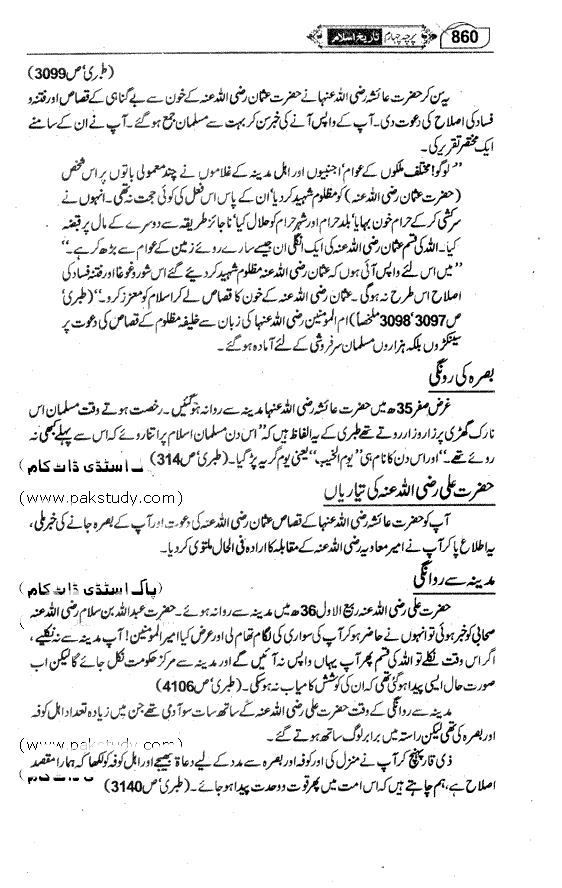 860 پرچہ چہارم تاریخ اسلام
(طبری' ص 3099)
یہ سن کر حضرت عائشہ رضی اللہ عنہا نے حضرت عثمان رضی اللہ عنہ کے خون سے بے گناہی کے قصاص اور فتنہ و
فساد کی اصلاح کی دعوت دی۔ آپ کے واپس آنے کی خبر سن کر بہت سے مسلمان جمع ہو گئے۔ آپ نے ان کے سامنے
ایک مختصر تقریر کی۔
"لوگو! مختلف ملکوں کے عوام' اجنبیوں اور اہل مدینہ کے غلاموں نے چند معمولی باتوں پر اس شخص
(حضرت عثمان رضی اللہ عنہ) کو مظلوم شہید کر دیا' ان کے پاس اس فعل کی کوئی حجت نہ تھی۔ انہوں نے
سرکشی کر کے حرام خون بہایا' بلد حرام اور شہر حرام کو حلال کیا' ناجائز طریقہ سے دوسرے کے مال پر قبضہ
کیا۔ اللہ کی قسم عثمان رضی اللہ عنہ کی ایک انگلی ان جیسے سارے روئے زمین کے عوام سے بڑھ کر ہے۔"
"میں اس لئے واپس آئی ہوں کہ عثمان رضی اللہ عنہ مظلوم شہید کر دیئے گئے اس شور و غوغا اور فتنہ فساد کی
اصلاح اس طرح نہ ہو گی۔ عثمان رضی اللہ عنہ کے خون کا قصاص لے کر اسلام کو معزز کرو۔" (طبری'
ص 3097' 3098 ملخصاً) ام المومنین رضی اللہ عنہا کی زبان سے خلیفہ مظلوم کے قصاص کی دعوت پر
سینکڑوں بلکہ ہزاروں مسلمان سرفروشی کے لئے آمادہ ہو گئے۔
بصرہ کی روانگی
غرض صفر 35ھ میں حضرت عائشہ رضی اللہ عنہا مدینہ سے روانہ ہو گئیں۔ رخصت ہوتے وقت مسلمان اس
نازک گھڑی پر زار و زار روتے تھے طبری کے یہ الفاظ ہیں کہ "اس دن مسلمان اسلام پر اتنا روئے کہ اس سے پہلے کبھی نہ
روئے تھے۔" اور اس دن کا نام ہی "یوم النحیب" یعنی یوم گریہ پڑ گیا۔ (طبری' ص 314)
اسٹڈی ڈاٹ کام
حضرت علی رضی اللہ عنہ کی تیاریاں
(www.pakstudy.com)
آپ کو حضرت عائشہ رضی اللہ عنہا کے قصاص عثمان رضی اللہ عنہ کی دعوت اور آپ کے بصرہ جانے کی خبر ملی،
یہ اطلاع پا کر آپ نے امیر معاویہ رضی اللہ عنہ کے مقابلہ کا ارادہ فی الحال ملتوی کر دیا۔
مدینہ سے روانگی
(پاک اسٹڈی ڈاٹ کام)
حضرت علی رضی اللہ عنہ ربیع الاول 36ھ میں مدینہ سے روانہ ہوئے۔ حضرت عبداللہ بن سلام رضی اللہ عنہ
صحابی کو خبر ہوئی تو انہوں نے حاضر ہو کر آپ کی سواری کی لگام تھام لی اور عرض کیا امیر المومنین! آپ مدینہ سے نہ نکلیے،
اگر اس وقت نکلے تو اللہ کی قسم پھر آپ یہاں واپس نہ آئیں گے اور مدینہ سے مرکز حکومت نکل جائے گا لیکن اب
صورت حال ایسی پیدا ہو گئی تھی کہ ان کی کوشش کامیاب نہ ہو سکی۔ (طبری' ص 4106)
مدینہ سے روانگی کے وقت حضرت علی رضی اللہ عنہ کے ساتھ سات سو آدمی تھے جن میں زیادہ تعداد اہل کوفہ
اور بصرہ کی تھی لیکن راستہ میں برابر لوگ ساتھ ہوتے گئے۔
(www.pakstudy.com)
ذی قار پہنچ کر آپ نے منزل کی اور کوفہ اور بصرہ سے مدد کے لیے دعاۃ بھیجے اور اہل کوفہ کو لکھا کہ ہمارا مقصد
اصلاح ہے، ہم چاہتے ہیں کہ اس امت میں پھر قوت و وحدت پیدا ہو جائے۔ (طبری' ص 3140)